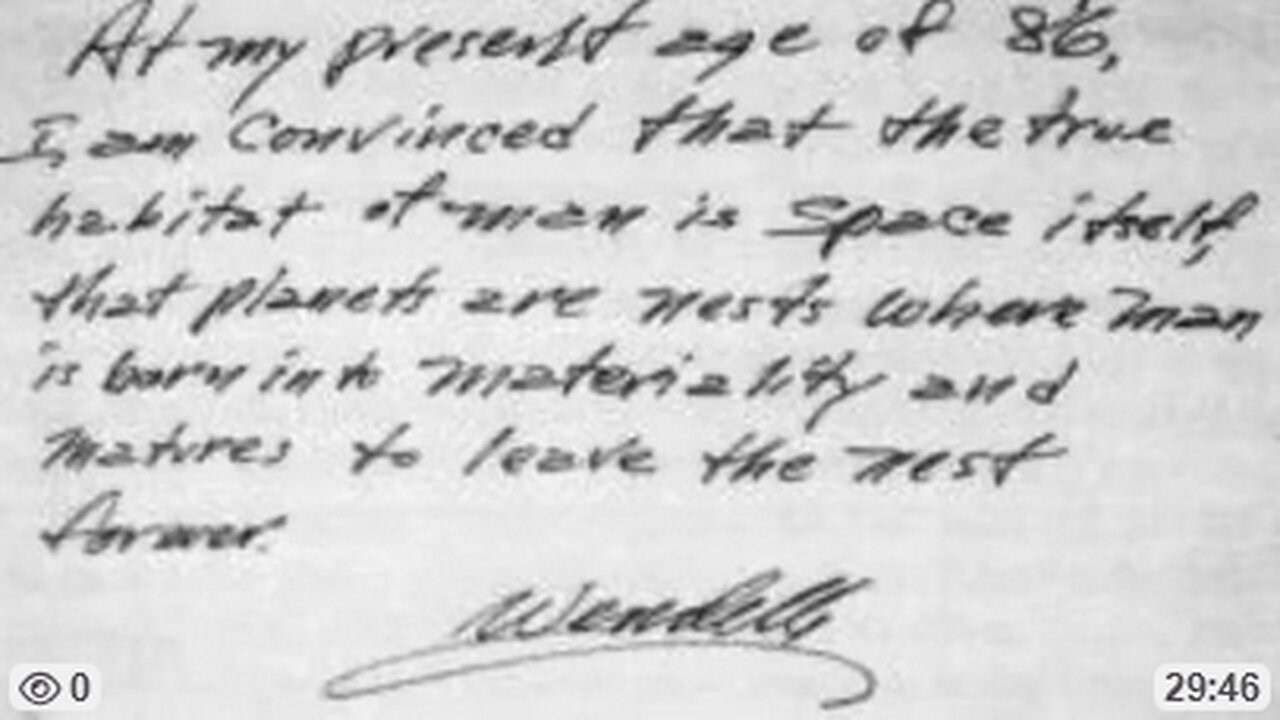 At my present age of 86,
I, am Convinced that the true
habitat of man is Space itself,
that planets are nests where man
is born into materiality and
matures to leave the nest
forever.
Wendelle
0
29:46